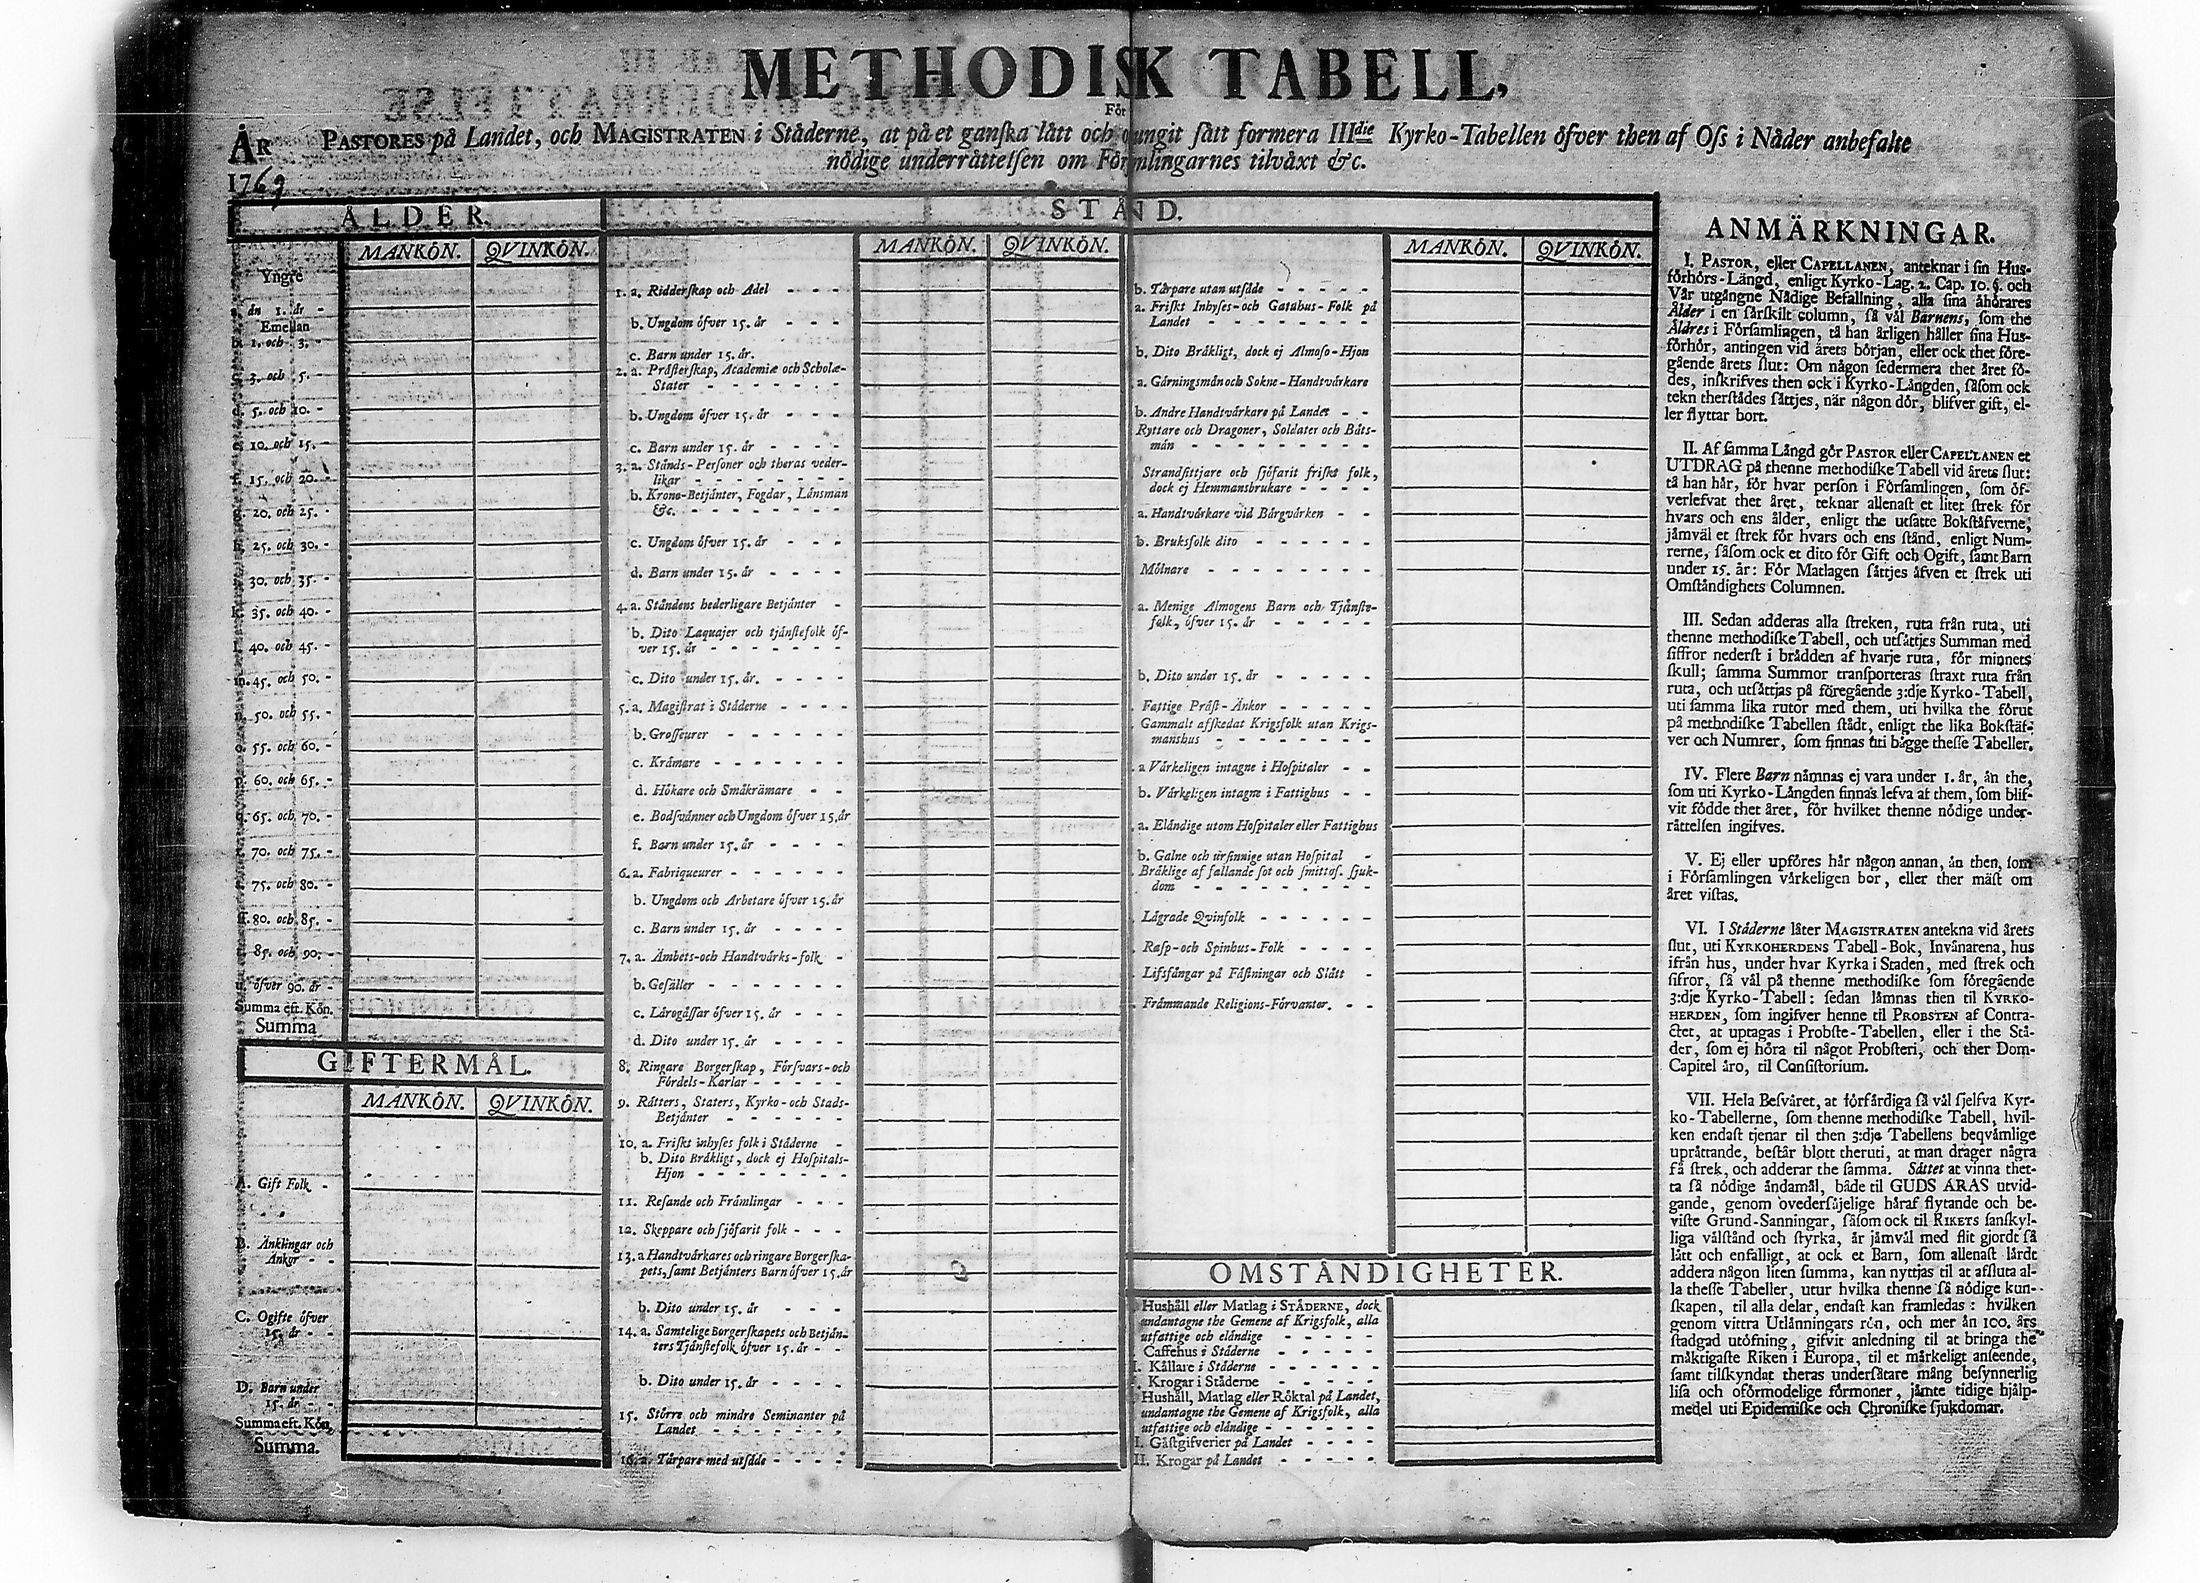 METHODISK TABELL,
För
PASTORES på Landet, och MAGISTRATEN i Städerne, at på et ganſka lätt och otungit ſätt formera IIIdie Kyrko-Tabellen öfver then af Oſs i Nåder anbefalte
nödige underrättelſen om Förſamlingarnes tilväxt &c.
ÅR
1769
ÅLDER.
MANKÖN. QVINKÖN.
Yngre
än 1. år -
Emellan
1. och 3. -
3. och 5. -
5. och 10. -
10. och 15. -
15. och 20. -
20. och 25. -
25. och 30. -
30. och 35. -
35. och 40. -
40. och 45. -
m. 45. och 50. -
50. och 55. -
55. och 60. -
60. och 65. -
65. och 70. -
70. och 75. -
75. och 80. -
80. och 85. -
85. och 90. -
öfver 90. år -
Summa eft. Kön.
Summa
GIFTERMÅL.
MANKÖN. QVINKÖN.
A. Gift Folk -
B. Änklingar och
Änkor - -
C. Ogifte öfver
15. år - -
D. Barn under
15. år - -
Summa eft. Kön.
Summa.
STÅND.
MANKÖN. QVINKÖN.
1. a. Ridderſkap och Adel - - -
b. Ungdom öfver 15. år - - -
c. Barn under 15. år.
2. a. Präſterſkap, Academiæ och Scholæ-
Stater - - - - - -
b. Ungdom öfver 15. år - - -
c. Barn under 15. år - - - -
3. a. Stånds-Perſoner och theras veder-
likar - - - - - - -
b. Krono-Betjänter, Fogdar, Länsmän
&c. - - - - - - - -
c. Ungdom öfver 15. år - - -
d. Barn under 15. år - - - -
4. a. Ståndens hederligare Betjänter -
b. Dito Laquajer och tjänſtefolk öf-
ver 15. år - - - - - -
c. Dito under 15. år. - - - -
5. a. Magiſtrat i Städerne - - - -
b. Groſſeurer - - - - - -
c. Krämare - - - - - - -
d. Hökare och Småkrämare - -
e. Bodſvänner och Ungdom öfver 15. år
f. Barn under 15. år - - - -
6. a. Fabriqueurer - - - - - -
b. Ungdom och Arbetare öfver 15. år
c. Barn under 15. år - - - -
7. a. Ämbets-och Handtvärks-folk -
b. Geſäller - - - - - - -
c. Lärogåſſar öfver 15. år - - -
d. Dito under 15. år - - - -
8. Ringare Borgerſkap, Förſvars-och
Fördels-Karlar - - - - -
9. Rätters, Staters, Kyrko-och Stads-
Betjänter - - - - -
10. a. Friſkt inhyſes folk i Städerne -
b. Dito Bräkligt, dock ej Hoſpitals-
Hjon - - - - - - -
11. Reſande och Främlingar - - -
12. Skeppare och ſjöfarit folk - - -
13. a Handtvärkares och ringare Borgerſka-
pets, ſamt Betjänters Barn öfver 15. år
b. Dito under 15. år - - -
14. a. Samtelige Borgerſkapets och Betjän-
ters Tjänſtefolk öfver 15. år - -
b. Dito under 15. år - - - -
15. Större och mindre Seminanter på
Landet - - - - - -
16. a. Tårpare med utſäde - - - -
MANKÖN. QVINKÖN.
b. Tårpare utan utſäde - - - - -
a. Friſkt Inhyſes-och Gatuhus-Folk på
Landet - - - - - - - -
b. Dito Bräkligt, dock ej Almoſo-Hjon
a. Gärningsmän och Sokne-Handtvärkare
b. Andre Handtvärkare på Landet - -
Ryttare och Dragoner, Soldater och Båts-
män - - - - - - - -
Strandſittjare och ſjöfarit friſkt folk,
dock ej Hemmansbrukare - - - -
a. Handtvärkare vid Bärgvärken - -
b. Bruksfolk dito - - - - - -
Mölnare - - - - - - - -
a. Menige Almogens Barn och Tjänſte-
folk, öfver 15. år - - - - -
b. Dito under 15. år - - - - -
Fattige Präſt-Änkor - - - - -
Gammalt afſkedat Krigsfolk utan Krigs-
manshus - - - - - - -
a Värkeligen intagne i Hoſpitaler - -
b. Värkeligen intagne i Fattighus - -
a. Eländige utom Hoſpitaler eller Fattighus
b. Galne och urſinnige utan Hoſpital -
Bräklige af fallande ſot och ſmittoſ. ſjuk-
dom - - - - - - - - -
Lägrade Qvinfolk - - - - - -
Raſp-och Spinhus-Folk - - - -
Lifsfångar på Fäſtningar och Slått -
Främmande Religions-Förvanter. - -
OMSTÄNDIGHETER.
Hushåll eller Matlag i STÄDERNE, dock
undantagne the Gemene af Krigsfolk, alla
utfattige och eländige - - - - -
Caffehus i Städerne - - - - -
Källare i Städerne - - - - - -
Krogar i Städerne - - - - -
Hushåll, Matlag eller Röktal på Landet,
undantagne the Gemene af Krigsfolk, alla
utfattige och eländige - - - - - -
I. Gäſtgifverier på Landet - - - -
II. Krogar på Landet - - - - -
ANMÄRKNINGAR.
I. PASTOR, eller CAPELLANEN, anteknar i ſin Hus-
förhörs-Längd, enligt Kyrko-Lag. 2. Cap. 10. §. och
Vår utgångne Nådige Befallning, alla ſina åhörares
Ålder i en ſärſkilt column, ſå väl Barnens, ſom the
Äldres i Förſamlingen, tå han årligen håller ſina Hus-
förhör, antingen vid årets början, eller ock thet före-
gående årets ſlut: Om någon ſedermera thet året fö-
des, inſkrifves then ock i Kyrko-Längden, ſåſom ock
tekn therſtädes ſättjes, när någon dör, blifver gift, el-
ler flyttar bort.
II. Af ſamma Längd gör PASTOR eller CAPELLANEN et
UTDRAG på thenne methodiſke Tabell vid årets ſlut:
tå han här, för hvar perſon i Förſamlingen, ſom öf-
verlefvat thet året, teknar allenaſt et litet ſtrek för
hvars och ens ålder, enligt the utſatte Bokſtäfverne,
jämväl et ſtrek för hvars och ens ſtånd, enligt Num-
rerne, ſåſom ock et dito för Gift och Ogift, ſamt Barn
under 15. år: För Matlagen ſättjes äfven et ſtrek uti
Omſtändighets Columnen.
III. Sedan adderas alla ſtreken, ruta från ruta, uti
thenne methodiſke Tabell, och utſättjes Summan med
ſiffror nederſt i brädden af hvarje ruta, för minnets
ſkull; ſamma Summor tranſporteras ſtraxt ruta från
ruta, och utſättjas på föregående 3:dje Kyrko-Tabell,
uti ſamma lika rutor med them, uti hvilka the förut
på methodiſke Tabellen ſtådt, enligt the lika Bokſtäf-
ver och Numrer, ſom finnas uti bägge theſſe Tabeller.
IV. Flere Barn nämnas ej vara under 1. år, än the,
ſom uti Kyrko-Längden finnas lefva af them, ſom blif-
vit födde thet året, för hvilket thenne nödige under-
rättelſen ingifves.
V. Ej eller upföres här någon annan, än then, ſom
i Förſamlingen värkeligen bor, eller ther mäſt om
året viſtas.
VI. I Städerne låter MAGISTRATEN antekna vid årets
ſlut, uti KYRKOHERDENS Tabell-Bok, Invånarena, hus
ifrån hus, under hvar Kyrka i Staden, med ſtrek och
ſifror, ſå väl på thenne methodiſke ſom föregående
3:dje Kyrko-Tabell: ſedan lämnas then til KYRKO-
HERDEN, ſom ingifver henne til PROBSTEN af Contra-
ctet, at uptagas i Probſte-Tabellen, eller i the Stä-
der, ſom ej höra til något Probſteri, och ther Dom-
Capitel äro, til Conſiſtorium.
VII. Hela Beſväret, at förfärdiga ſå väl ſjelfva Kyr-
ko-Tabellerne, ſom thenne methodiſke Tabell, hvil-
ken endaſt tjenar til then 3:dje Tabellens beqvämlige
uprättande, beſtår blott theruti, at man drager några
få ſtrek, och adderar the ſamma. Sättet at vinna thet-
ta ſå nödige ändamål, både til GUDS ÄRAS utvid-
gande, genom ovederſäjelige häraf flytande och be-
viſte Grund-Sanningar, ſåſom ock til RIKETS ſanſkyl-
liga välſtånd och ſtyrka, är jämväl med flit gjordt ſå
lätt och enfalligt, at ock et Barn, ſom allenaſt lärdt
addera någon liten ſumma, kan nyttjas til at afſluta al-
la theſſe Tabeller, utur hvilka thenne ſå nödige kun-
ſkapen, til alla delar, endaſt kan framledas: hvilken
genom vittra Utlänningars rön, och mer än 100. års
ſtadgad utöfning, gifvit anledning til at bringa the
mäktigaſte Riken i Europa, til et märkeligt anſeende,
ſamt tilſkyndat theras underſåtare mång beſynnerlig
liſa och oförmodelige förmoner, jämte tidige hjälp-
medel uti Epidemiſke och Chroniſke ſjukdomar.